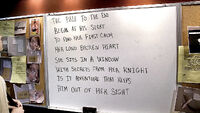 THE PATH TO THE END
BEGAN AT HIS START
TO FIND HER FIRST CALM
HER LOUD BROKEN HEART
SHE SITS IN A WINDOW
WITH SECRETS FROM HER KNIGHT
IS IT ADVENTURE THAT KEEPS
HIM OUT OF HER SIGHT